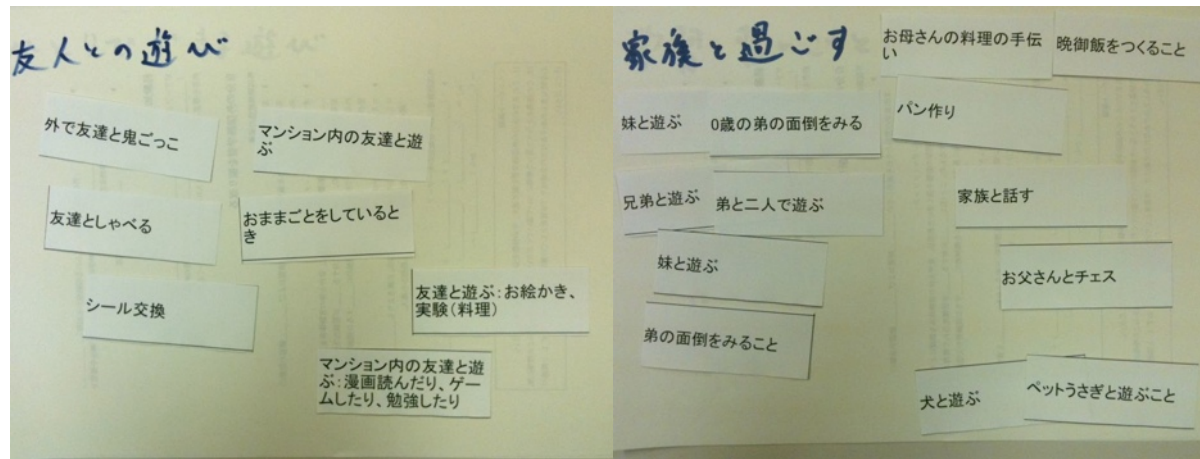 友人との遊び
外で友達と鬼ごっこ
マンション内の友達と遊
ぶ
友達としゃべる
おままごとをしていると
き
シール交換
友達と遊ぶ：お絵かき、
実験（料理）
マンション内の友達と遊
ぶ：漫画読んだり、ゲー
ムしたり、勉強したり
家族と過ごす
お母さんの料理の手伝
い
晩御飯をつくること
妹と遊ぶ
0歳の弟の面倒をみる
パン作り
兄弟と遊ぶ
弟と二人で遊ぶ
家族と話す
妹と遊ぶ
お父さんとチェス
弟の面倒をみること
犬と遊ぶ
ペットうさぎと遊ぶこと